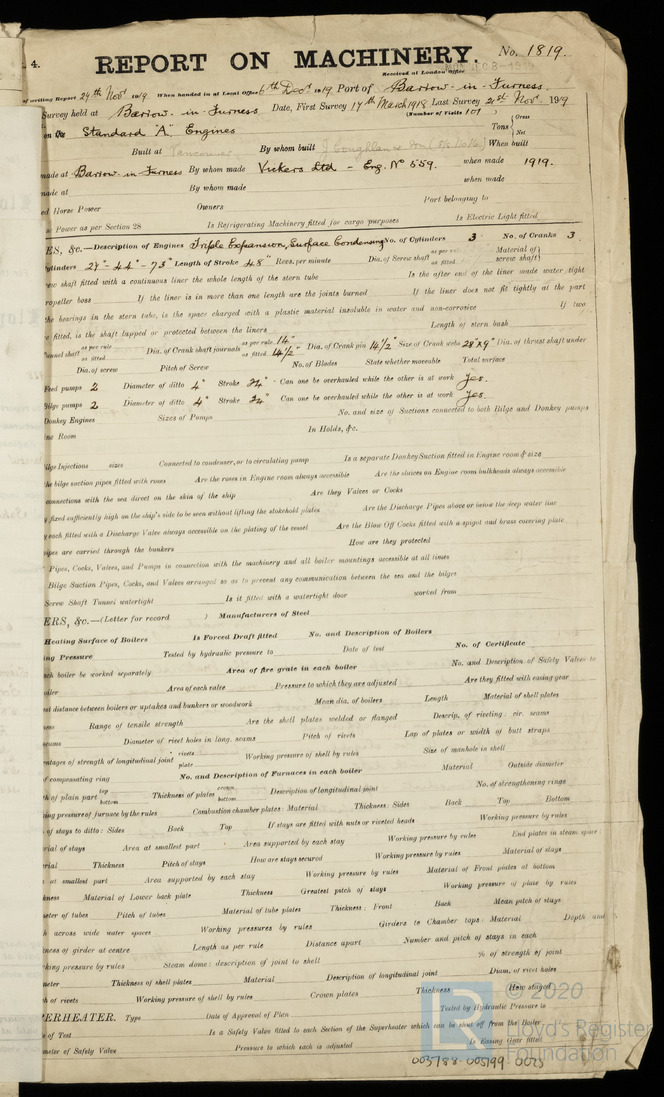 4. REPORT ON MACHINERY. No. 1819.
Received at London Office
of writing Report 24th Novr 1919 When handed in at Local Office 6th Decr 1919 Port of Barrow-in-Furness
Survey held at Barrow-in-Furness Date, First Survey 17th March 1918 Last Survey 21st Novr 1919
(Number of Visits 101)
on the Standard "A" Engines Tons Gross Net
Built at Vancouver By whom built J Coughlan & Son When built
made at Barrow-in-Furness By whom made Vickers Ltd - Eng. No 559. when made 1919.
made at By whom made when made
ed Horse Power Owners Port belonging to
Power as per Section 28 Is Refrigerating Machinery fitted for cargo purposes Is Electric Light fitted
ES, &c.—Description of Engines Triple Expansion, Surface Condensing No. of Cylinders 3 No. of Cranks 3
Cylinders 27"-44"-73" Length of Stroke 48" Revs. per minute Dia. of Screw shaft as per rule as fitted Material of screw shaft)
ew shaft fitted with a continuous liner the whole length of the stern tube Is the after end of the liner made water tight
ropeller boss If the liner is in more than one length are the joints burned If the liner does not fit tightly at the part
the bearings in the stern tube, is the space charged with a plastic material insoluble in water and non-corrosive If two
e fitted, is the shaft lapped or protected between the liners Length of stern bush
unnel shaft as per rule as fitted Dia. of Crank shaft journals as per rule 14" as fitted 14 1/2" Dia. of Crank pin 14 1/2" Size of Crank webs 28"x9" Dia. of thrust shaft under
Dia. of screw Pitch of Screw No. of Blades State whether moveable Total surface
Feed pumps 2 Diameter of ditto 4" Stroke 24" Can one be overhauled while the other is at work Yes.
Bilge pumps 2 Diameter of ditto 4" Stroke 24" Can one be overhauled while the other is at work Yes
Donkey Engines Sizes of Pumps No. and size of Suctions connected to both Bilge and Donkey pumps
ine Room In Holds, &c.
ilge Injections sizes Connected to condenser, or to circulating pump Is a separate Donkey Suction fitted in Engine room & size
the bilge suction pipes fitted with roses Are the roses in Engine room always accessible Are the sluices on Engine room bulkheads always accessible
connections with the sea direct on the skin of the ship Are they Valves or Cocks
y fixed sufficiently high on the ship's side to be seen without lifting the stokehold plates Are the Discharge Pipes above or below the deep water line
y each fitted with a Discharge Valve always accessible on the plating of the vessel Are the Blow Off Cocks fitted with a spigot and brass covering plate
ipes are carried through the bunkers How are they protected
Pipes, Cocks, Valves, and Pumps in connection with the machinery and all boiler mountings accessible at all times
Bilge Suction Pipes, Cocks, and Valves arranged so as to prevent any communication between the sea and the bilges
Screw Shaft Tunnel watertight Is it fitted with a watertight door worked from
ERS, &c.—(Letter for record ) Manufacturers of Steel
Heating Surface of Boilers Is Forced Draft fitted No. and Description of Boilers
ing Pressure Tested by hydraulic pressure to Date of test No. of Certificate
ach boiler be worked separately Area of fire grate in each boiler No. and Description of Safety Valves to
oiler Area of each valve Pressure to which they are adjusted Are they fitted with easing gear
st distance between boilers or uptakes and bunkers or woodwork Mean dia. of boilers Length Material of shell plates
ness Range of tensile strength Are the shell plates welded or flanged Descrip. of riveting: cir. seams
seams Diameter of rivet holes in long. seams Pitch of rivets Lap of plates or width of butt straps
entages of strength of longitudinal joint rivets plate Working pressure of shell by rules Size of manhole in shell
f compensating ring No. and Description of Furnaces in each boiler Material Outside diameter
h of plain part top bottom Thickness of plates crown bottom Description of longitudinal joint No. of strengthening rings
ing pressure of furnace by the rules Combustion chamber plates: Material Thickness: Sides Back Top Bottom
of stays to ditto: Sides Back Top If stays are fitted with nuts or riveted heads Working pressure by rules
ial of stays Area at smallest part Area supported by each stay Working pressure by rules End plates in steam space:
rial Thickness Pitch of stays How are stays secured Working pressure by rules Material of stays
at smallest part Area supported by each stay Working pressure by rules Material of Front plates at bottom
kness Material of Lower back plate Thickness Greatest pitch of stays Working pressure of plate by rules
eter of tubes Pitch of tubes Material of tube plates Thickness: Front Back Mean pitch of stays
h across wide water spaces Working pressures by rules Girders to Chamber tops: Material Depth and
ness of girder at centre Length as per rule Distance apart Number and pitch of stays in each
king pressure by rules Steam dome: description of joint to shell % of strength of joint
meter Thickness of shell plates Material Description of longitudinal joint Diam. of rivet holes
h of rivets Working pressure of shell by rules Crown plates Thickness How stayed
ERHEATER. Type Date of Approval of Plan Tested by Hydraulic Pressure to
e of Test Is a Safety Valve fitted to each Section of the Superheater which can be shut off from the Boiler
meter of Safety Valve Pressure to which each is adjusted Is Easing Gear fitted
© 2020
Lloyd's Register
Foundation
LR
003788-003799 0023